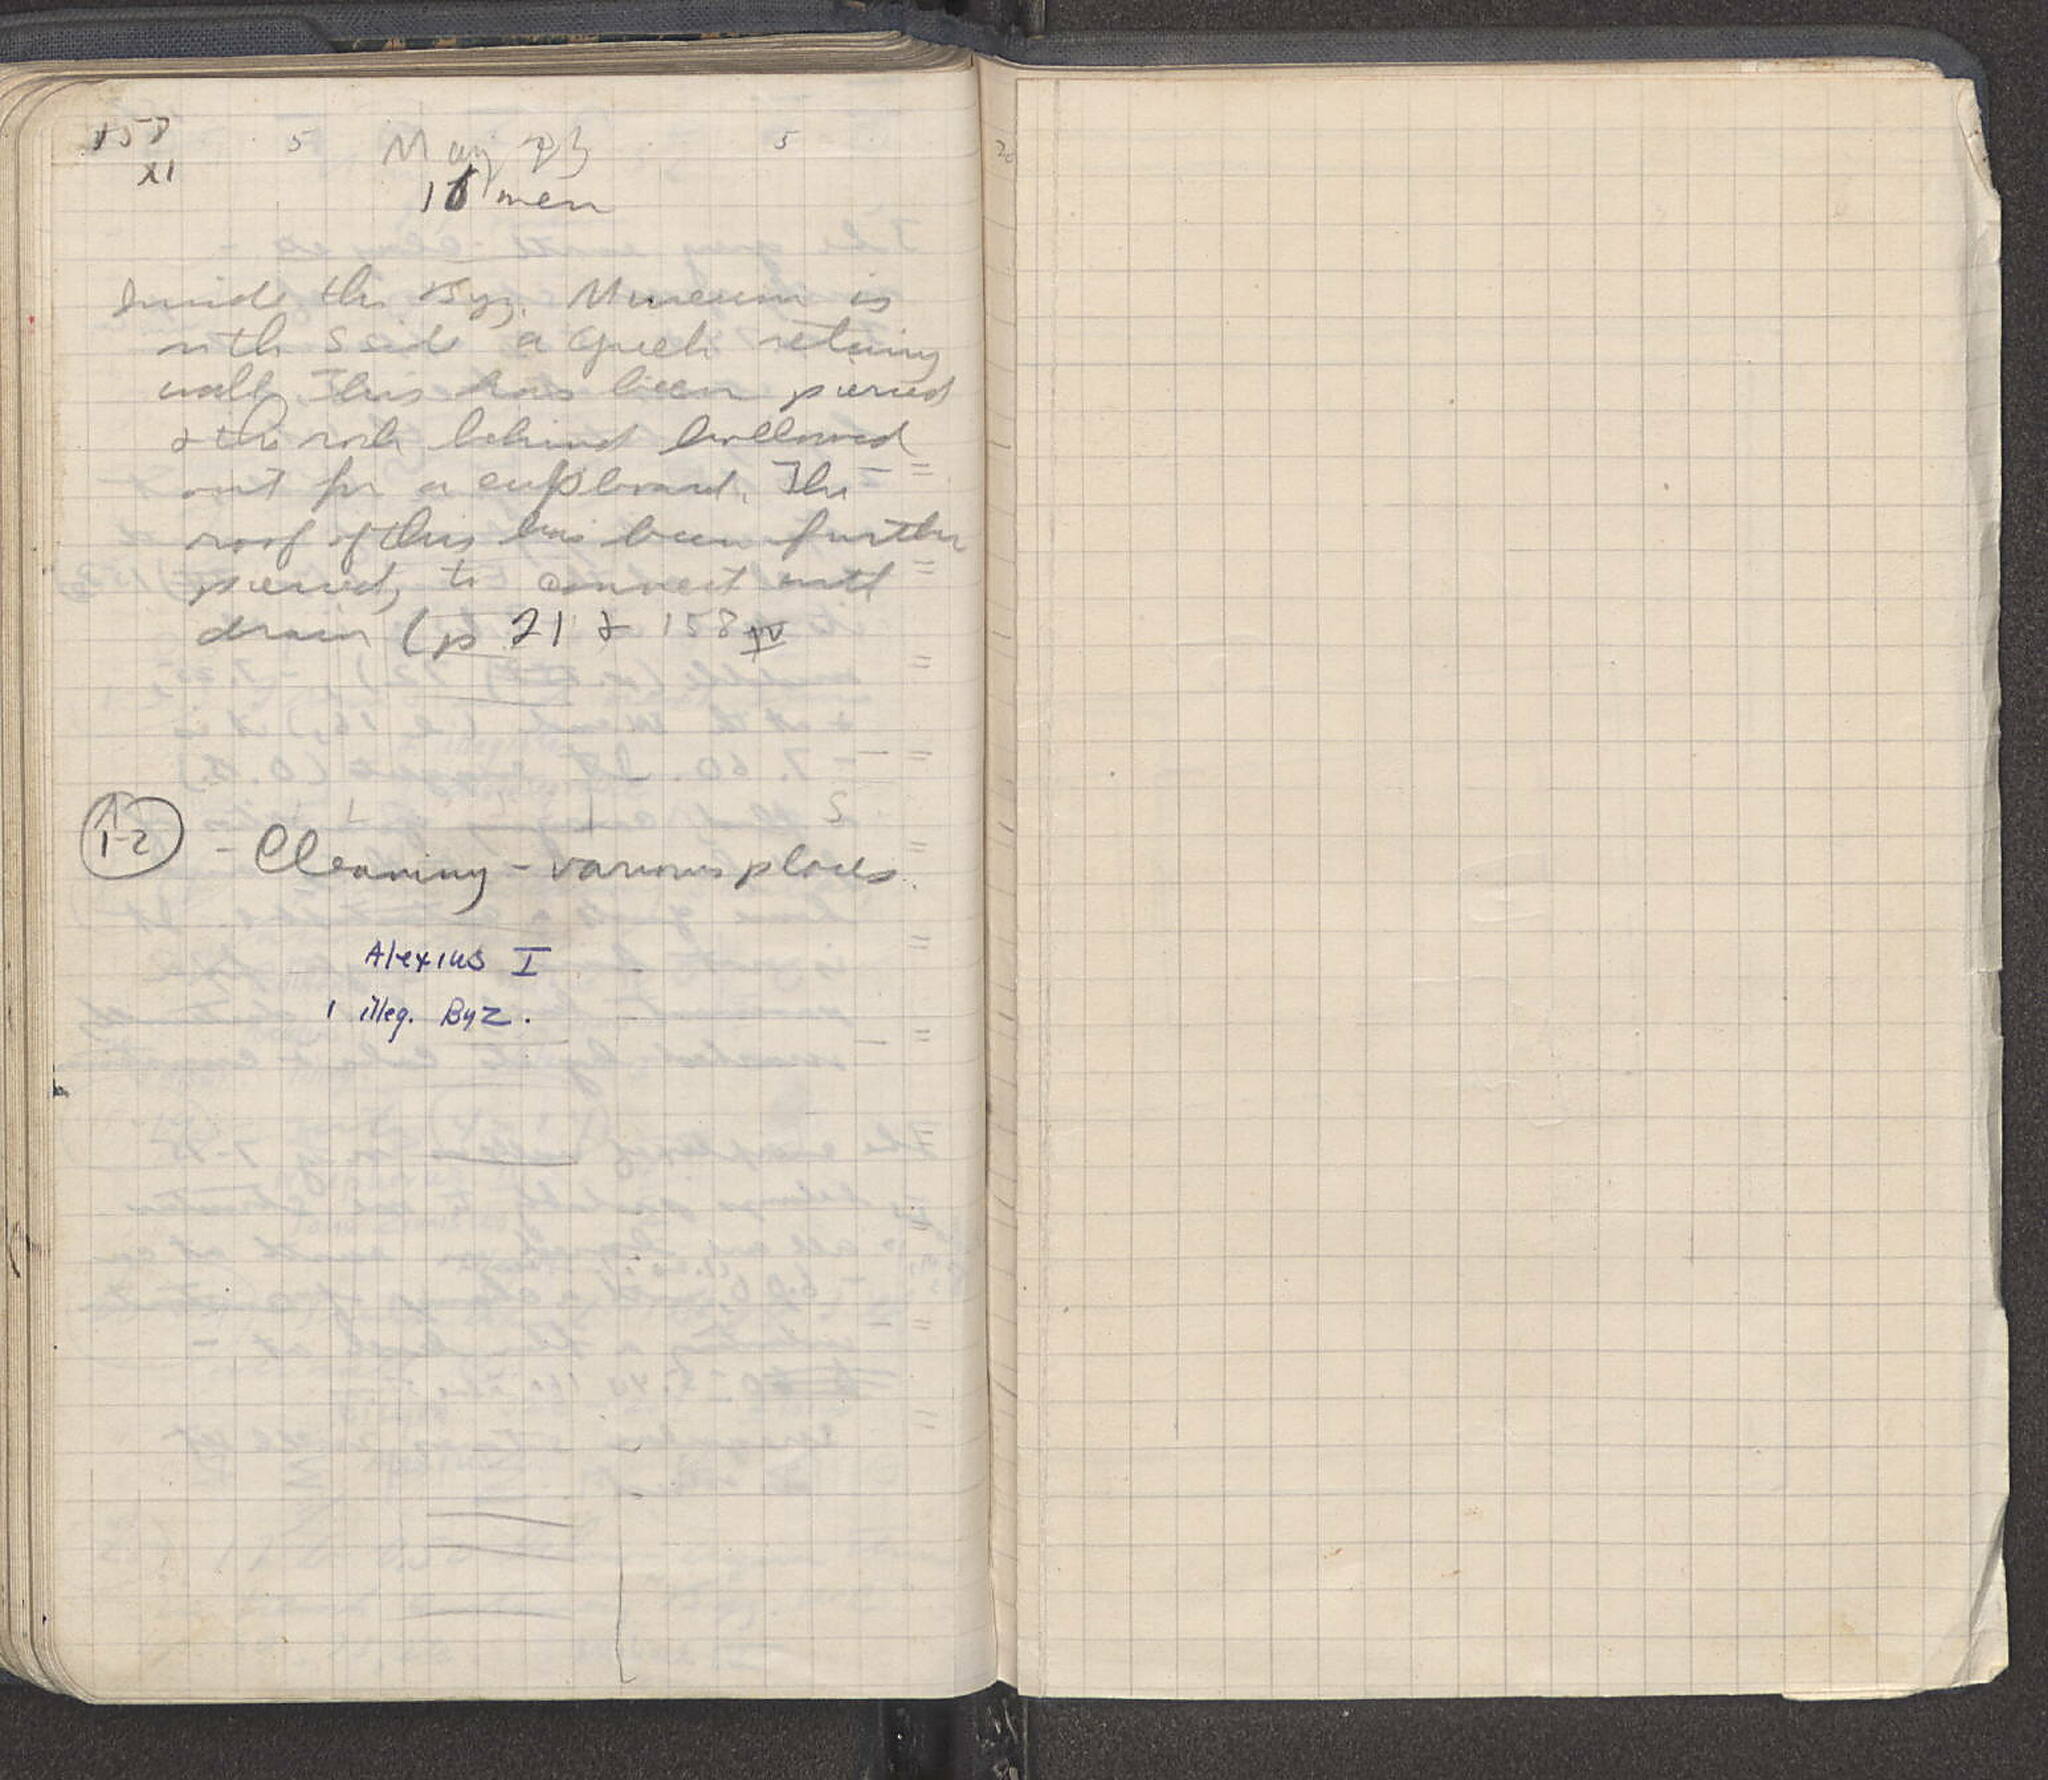 158
XI
5 May 5
16 men
Inside the Byz. Museum is
on the S side a Greek retaining
wall, This has been pierced
& the rock behind hollowed
out for a cupboard. The
roof of this has been further
pierced, to connect with
drain (p 21 & 158 IV
1-2 - Cleaning - various places.
Alexius I
1 illeg. Byz.